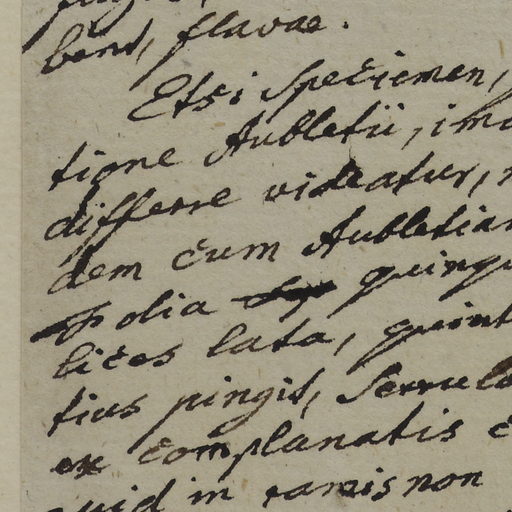 bent, flavae.
Etsi Specimen,
tione Aubletii, im
differre videatur,
dem cum Aubletia
folia quinqu
lices lata, quint
tius pingit, Serrul
ex complanatis c
uid in ramis non